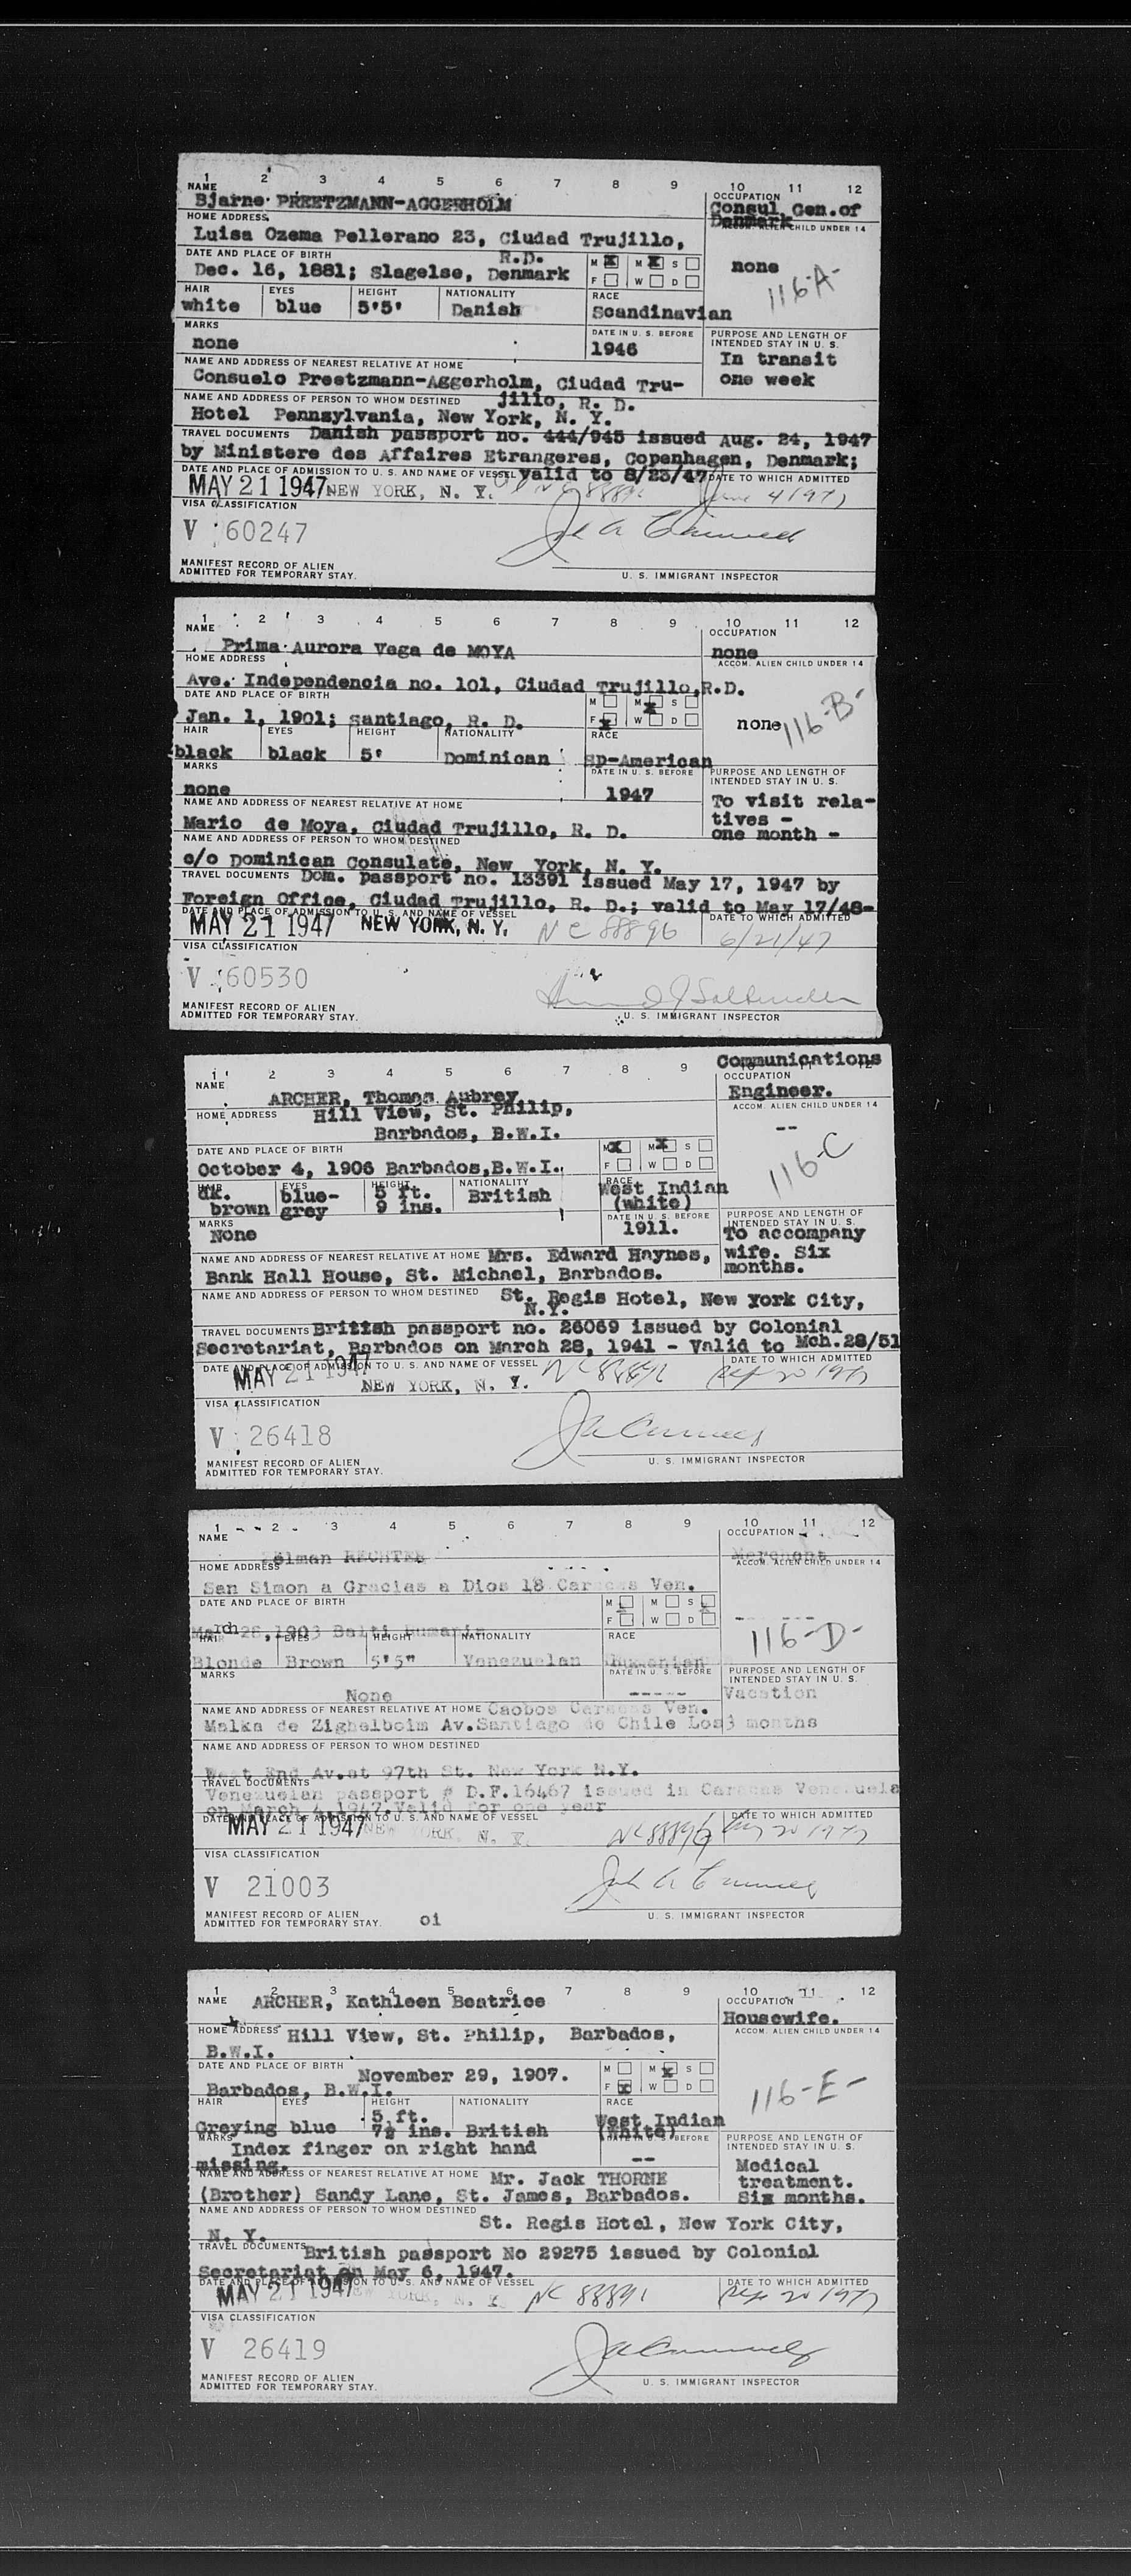 1 2 3 4 5 6 7 8 9 10 11 12
NAME
Bjarne PREETZMANN-AGGERHOLM
OCCUPATION
Consul Gen. of
Denmark
HOME ADDRESS
Luisa Ozema Pellerano 23, Ciudad Trujillo,
R.D.
ACCOM. ALIEN CHILD UNDER 14
none
116-A-
DATE AND PLACE OF BIRTH
Dec. 16, 1881; Slagelse, Denmark
M X M X S
F W D
HAIR EYES HEIGHT NATIONALITY RACE
white blue 5'5' Danish Scandinavian
MARKS
none
DATE IN U. S. BEFORE
1946
PURPOSE AND LENGTH OF
INTENDED STAY IN U. S.
In transit
one week
NAME AND ADDRESS OF NEAREST RELATIVE AT HOME
Consuelo Preetzmann-Aggerholm, Ciudad Tru-
jillo, R. D.
NAME AND ADDRESS OF PERSON TO WHOM DESTINED
Hotel Pennsylvania, New York, N. Y.
TRAVEL DOCUMENTS Danish passport no. 444/945 issued Aug. 24, 1947
by Ministere des Affaires Etrangeres, Copenhagen, Denmark;
valid to 8/23/47
DATE AND PLACE OF ADMISSION TO U. S. AND NAME OF VESSEL
DATE TO WHICH ADMITTED
MAY 21 1947 NEW YORK, N. Y. June 4 1947
VISA CLASSIFICATION
V 60247
MANIFEST RECORD OF ALIEN
ADMITTED FOR TEMPORARY STAY.
U. S. IMMIGRANT INSPECTOR
1 2 3 4 5 6 7 8 9 10 11 12
NAME
Prima Aurora Vega de MOYA
OCCUPATION
none
HOME ADDRESS
Ave. Independencia no. 101, Ciudad Trujillo, R.D.
ACCOM. ALIEN CHILD UNDER 14
none
116-B-
DATE AND PLACE OF BIRTH
Jan. 1, 1901; Santiago, R. D.
M M X S
F X W D
HAIR EYES HEIGHT NATIONALITY RACE
black black 5' Dominican Sp-American
MARKS
none
DATE IN U. S. BEFORE
1947
PURPOSE AND LENGTH OF
INTENDED STAY IN U. S.
To visit rela-
tives -
one month -
NAME AND ADDRESS OF NEAREST RELATIVE AT HOME
Mario de Moya, Ciudad Trujillo, R. D.
NAME AND ADDRESS OF PERSON TO WHOM DESTINED
c/o Dominican Consulate, New York, N. Y.
TRAVEL DOCUMENTS Dom. passport no. 13391 issued May 17, 1947 by
Foreign Office, Ciudad Trujillo, R. D.; valid to May 17/48-
DATE AND PLACE OF ADMISSION TO U. S. AND NAME OF VESSEL
DATE TO WHICH ADMITTED
MAY 21 1947 NEW YORK, N. Y. NC 88896 6/21/47
VISA CLASSIFICATION
V 60530
MANIFEST RECORD OF ALIEN
ADMITTED FOR TEMPORARY STAY.
U. S. IMMIGRANT INSPECTOR
1 2 3 4 5 6 7 8 9 10 11 12
Communications
Engineer.
OCCUPATION
NAME
ARCHER, Thomas Aubrey
HOME ADDRESS Hill View, St. Philip,
Barbados, B.W.I.
ACCOM. ALIEN CHILD UNDER 14
--
116-C
DATE AND PLACE OF BIRTH
October 4, 1906 Barbados, B.W.I.
M X M X S
F W D
HAIR EYES HEIGHT NATIONALITY RACE
dk. brown blue-grey 5 ft. 9 ins. British West Indian (white)
MARKS
None
DATE IN U. S. BEFORE
1911.
PURPOSE AND LENGTH OF
INTENDED STAY IN U. S.
To accompany
wife. Six
months.
NAME AND ADDRESS OF NEAREST RELATIVE AT HOME Mrs. Edward Haynes,
Bank Hall House, St. Michael, Barbados.
NAME AND ADDRESS OF PERSON TO WHOM DESTINED St. Regis Hotel, New York City,
N.Y.
TRAVEL DOCUMENTS British passport no. 26069 issued by Colonial
Secretariat, Barbados on March 28, 1941 - Valid to Mch.28/51
DATE AND PLACE OF ADMISSION TO U. S. AND NAME OF VESSEL
DATE TO WHICH ADMITTED
MAY 21 1947 NEW YORK, N. Y. Sep 20 1947
VISA CLASSIFICATION
V 26418
MANIFEST RECORD OF ALIEN
ADMITTED FOR TEMPORARY STAY.
U. S. IMMIGRANT INSPECTOR
1 2 3 4 5 6 7 8 9 10 11 12
NAME
OCCUPATION
Merchant
HOME ADDRESS
San Simon a Gracias a Dios 18 Caracas Ven.
ACCOM. ALIEN CHILD UNDER 14
116-D-
DATE AND PLACE OF BIRTH
March 28, 1903 Balti Rumania
M M S
F W D
HAIR EYES HEIGHT NATIONALITY RACE
Blonde Brown 5'5" Venezuelan
MARKS
None
DATE IN U. S. BEFORE
-----
PURPOSE AND LENGTH OF
INTENDED STAY IN U. S.
Vacation
3 months
NAME AND ADDRESS OF NEAREST RELATIVE AT HOME Caobos Caracas Ven.
Malka de Zighelboim Av. Santiago de Chile Los
NAME AND ADDRESS OF PERSON TO WHOM DESTINED
West End Av. at 97th St. New York N.Y.
TRAVEL DOCUMENTS
Venezuelan passport # D.F. 16467 issued in Caracas Venezuela
on March 4, 1947. Valid for one year
DATE AND PLACE OF ADMISSION TO U. S. AND NAME OF VESSEL
DATE TO WHICH ADMITTED
MAY 21 1947 NEW YORK, N. Y. NC 88896
VISA CLASSIFICATION
V 21003
MANIFEST RECORD OF ALIEN
ADMITTED FOR TEMPORARY STAY. oi
U. S. IMMIGRANT INSPECTOR
1 2 3 4 5 6 7 8 9 10 11 12
NAME ARCHER, Kathleen Beatrice
OCCUPATION
Housewife.
HOME ADDRESS Hill View, St. Philip, Barbados,
B.W.I.
ACCOM. ALIEN CHILD UNDER 14
116-E-
DATE AND PLACE OF BIRTH November 29, 1907.
Barbados, B.W.I.
M M X S
F X W D
HAIR EYES HEIGHT NATIONALITY RACE
Greying blue 5 ft. 7½ ins. British West Indian (White)
MARKS Index finger on right hand
missing.
DATE IN U. S. BEFORE
--
PURPOSE AND LENGTH OF
INTENDED STAY IN U. S.
Medical
treatment.
Six months.
NAME AND ADDRESS OF NEAREST RELATIVE AT HOME Mr. Jack THORNE
(Brother) Sandy Lane, St. James, Barbados.
NAME AND ADDRESS OF PERSON TO WHOM DESTINED St. Regis Hotel, New York City,
N. Y.
TRAVEL DOCUMENTS British passport No 29275 issued by Colonial
Secretariat on May 6, 1947.
DATE AND PLACE OF ADMISSION TO U. S. AND NAME OF VESSEL
DATE TO WHICH ADMITTED
MAY 21 1947 NEW YORK, N. Y. Sep 20 1947
VISA CLASSIFICATION
V 26419
MANIFEST RECORD OF ALIEN
ADMITTED FOR TEMPORARY STAY.
U. S. IMMIGRANT INSPECTOR